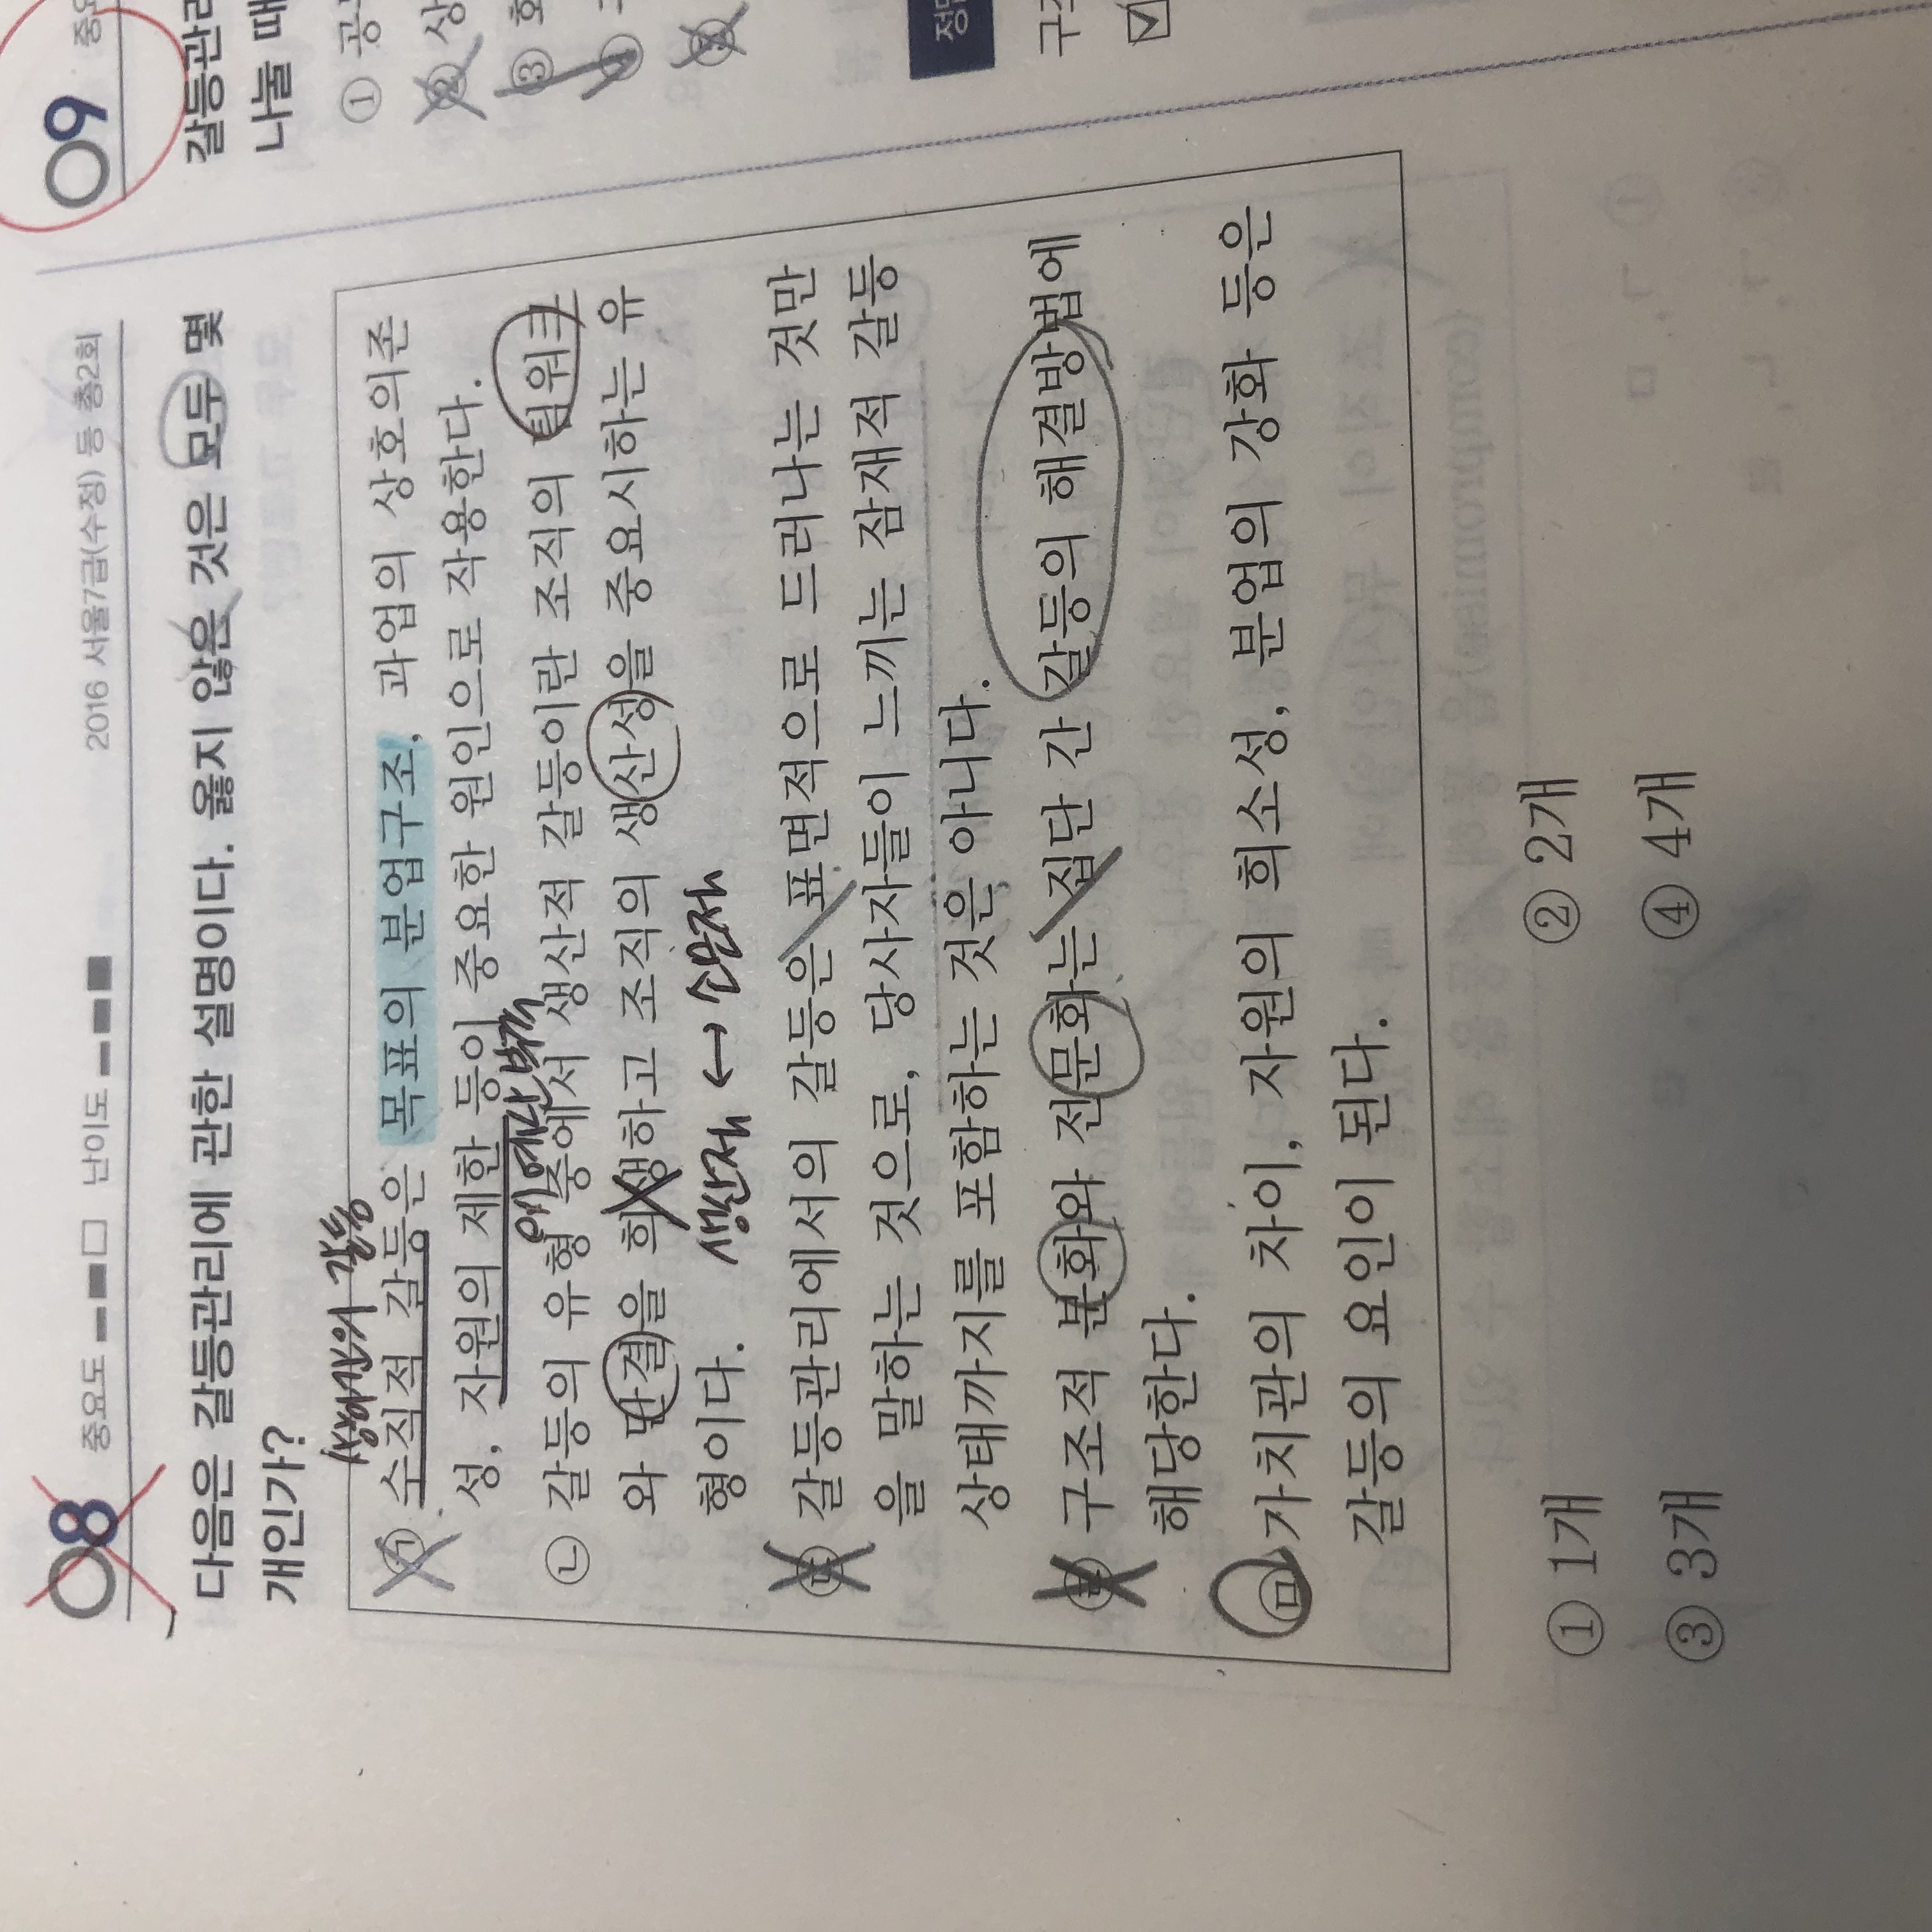 08 중요도 난이도 2016 서울7급(수정) 등 총2회
다음은 갈등관리에 관한 설명이다. 옳지 않은 것은 모두 몇
개인가?
상하간의 갈등
㉠ 수직적 갈등은 목표의 분업구조, 과업의 상호의존
성, 자원의 제한 등이 중요한 원인으로 작용한다.
㉡ 갈등의 유형 중에서 생산적 갈등이란 조직의 팀워크
와 단결을 희생하고 조직의 생산성을 중요시하는 유
형이다.
생산재 ← 소문재
㉢ 갈등관리에서의 갈등은 표면적으로 드러나는 것만
을 말하는 것으로, 당사자들이 느끼는 잠재적 갈등
상태까지를 포함하는 것은 아니다.
㉣ 구조적 분화와 전문화는 집단 간 갈등의 해결방법에
해당한다.
㉤ 가치관의 차이, 자원의 희소성, 분업의 강화 등은
갈등의 요인이 된다.
① 1개 ② 2개
③ 3개 ④ 4개
09 중요
갈등관리
나눌 때
① 공
② 상
③ 회
④
⑤
정답
구조